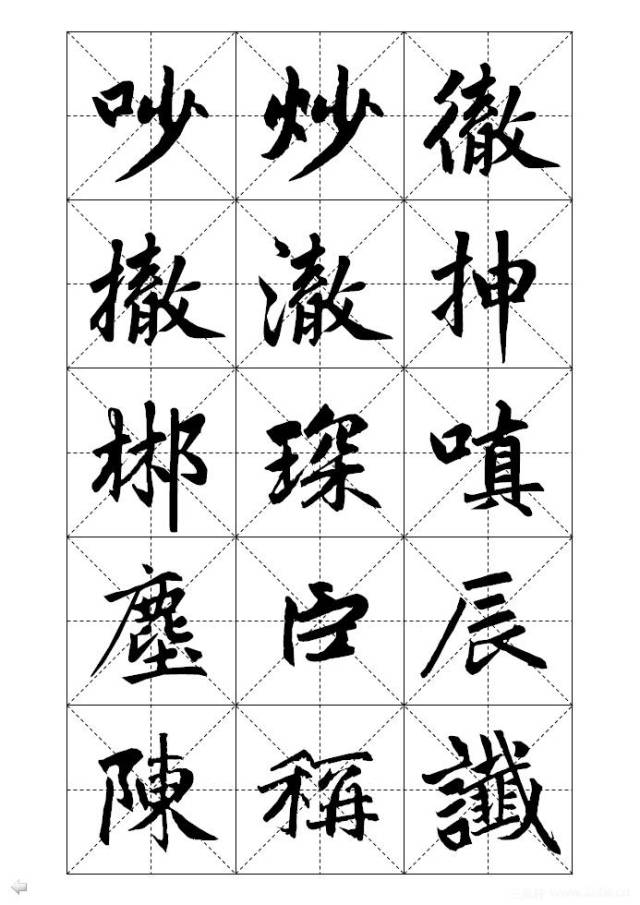 吵炒徹
撤澈抻
郴琛嗔
塵臣辰
陳稱讖